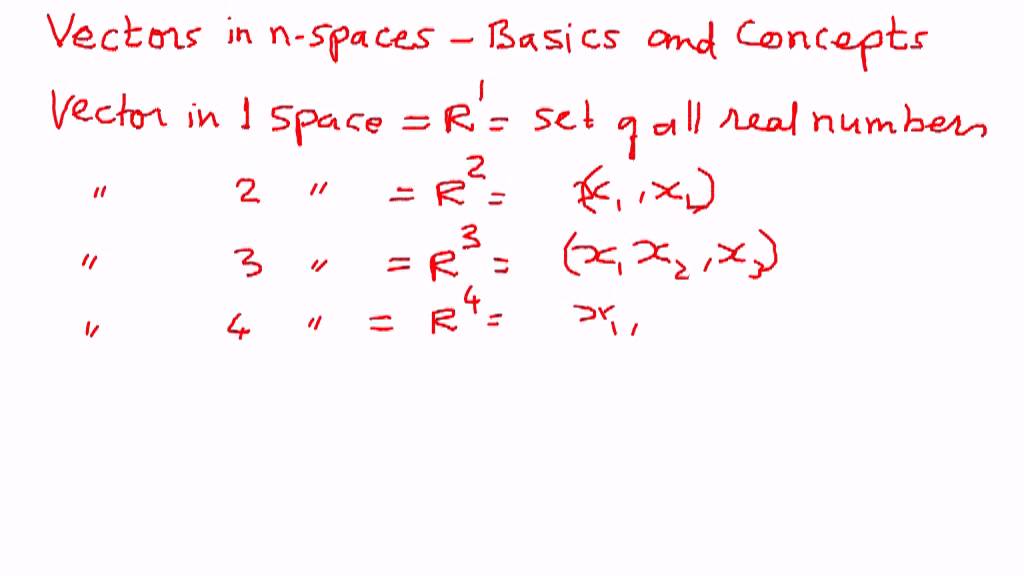 Vectors in n-spaces – Basics and Concepts
Vector in 1 space = R¹ = set of all real numbers
" 2 " = R² = (x₁, x₁)
" 3 " = R³ = (x₁ x₂, x₃)
" 4 " = R⁴ = x₁,